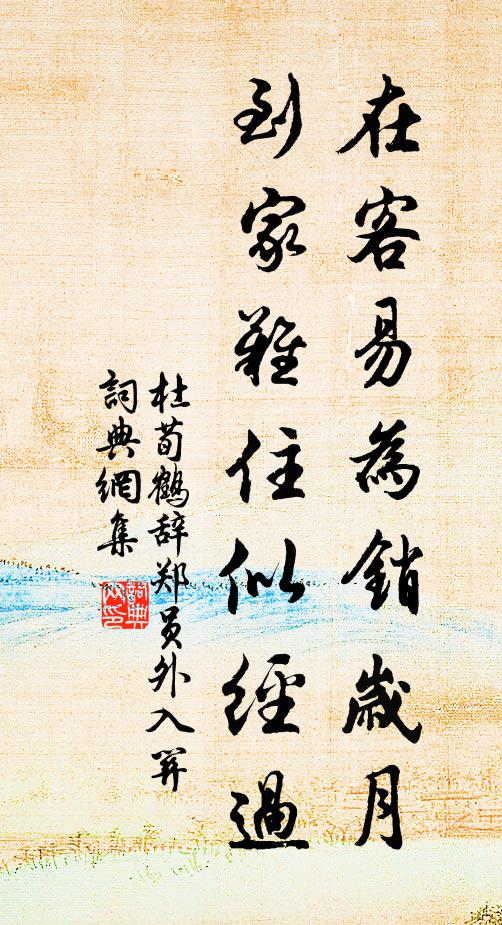 在客易為銷歲月
到家難住似經過
杜荀鶴辞郑員外入関
詞典網集